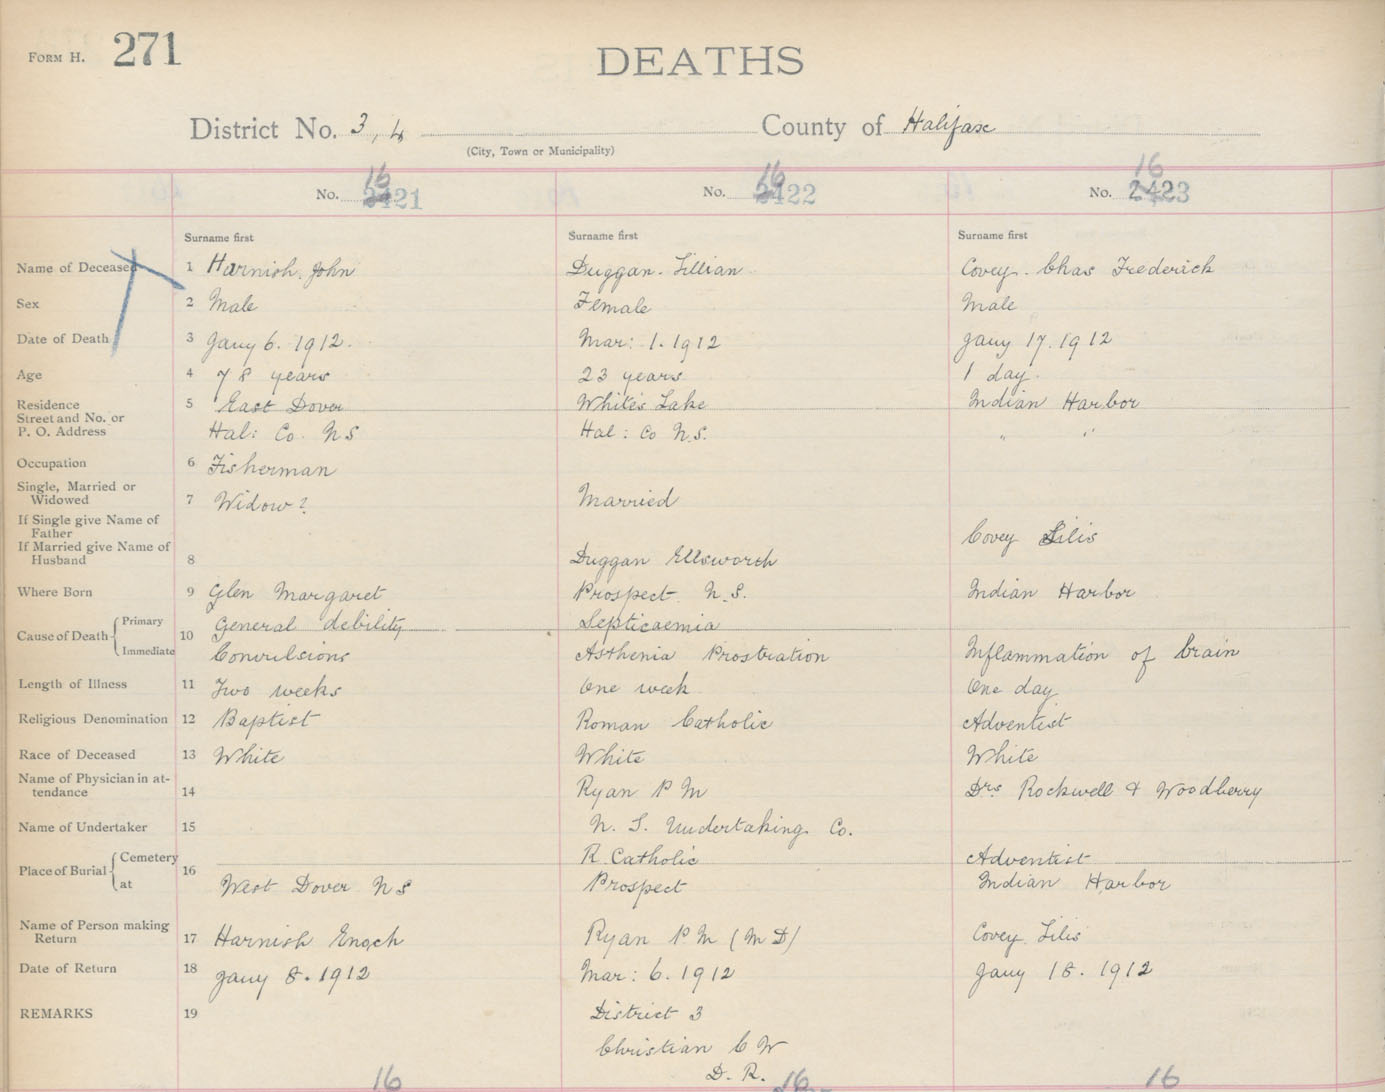 FORM H. 271
DEATHS
District No. 3, 4 County of Halifax
(City, Town or Municipality)
16 16 16
No. 2421 No. 2422 No. 2423
Surname first Surname first Surname first
Name of Deceased 1 Harnish. John Duggan. Lillian Covey. Chas Frederick
Sex 2 Male Female Male
Date of Death 3 Jany 6. 1912. Mar: 1. 1912 Jany 17. 1912
Age 4 78 years 23 years 1 day.
Residence 5 East Dover White's Lake Indian Harbor
Street and No. or
P. O. Address Hal: Co. N S Hal: Co N.S. " "
Occupation 6 Fisherman
Single, Married or
Widowed 7 Widow? Married
If Single give Name of
Father Covey Silis
If Married give Name of
Husband 8 Duggan Ellsworth
Where Born 9 Glen Margaret Prospect N.S. Indian Harbor
Cause of Death 10 Primary General debility Septicaemia
Immediate Convulsions Asthenia Prostration Inflammation of brain
Length of Illness 11 Two weeks One week One day
Religious Denomination 12 Baptist Roman Catholic Adventist
Race of Deceased 13 White White White
Name of Physician in at-
tendance 14 Ryan P M Drs Rockwell & Woodberry
Name of Undertaker 15 N. S. Undertaking Co.
Place of Burial 16 Cemetery R. Catholic Adventist
at West Dover N S Prospect Indian Harbor
Name of Person making
Return 17 Harnish Enoch Ryan P M (M D) Covey Silis
Date of Return 18 Jany 8. 1912 Mar: 6. 1912 Jany 18. 1912
REMARKS 19 District 3
Christian C W
D. R.
16 16 16